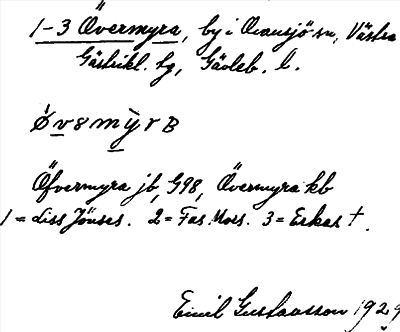 1-3 Övermyra, by i Ovansjö sn, Västra
Gästrikl. hg, Gävleb. l.
Öfvermyra jb, G98, Övermyra kb
1 = Liss Jönses. 2 = Fas Mors. 3 = Erkas †.
Emil Gustavsson 1929